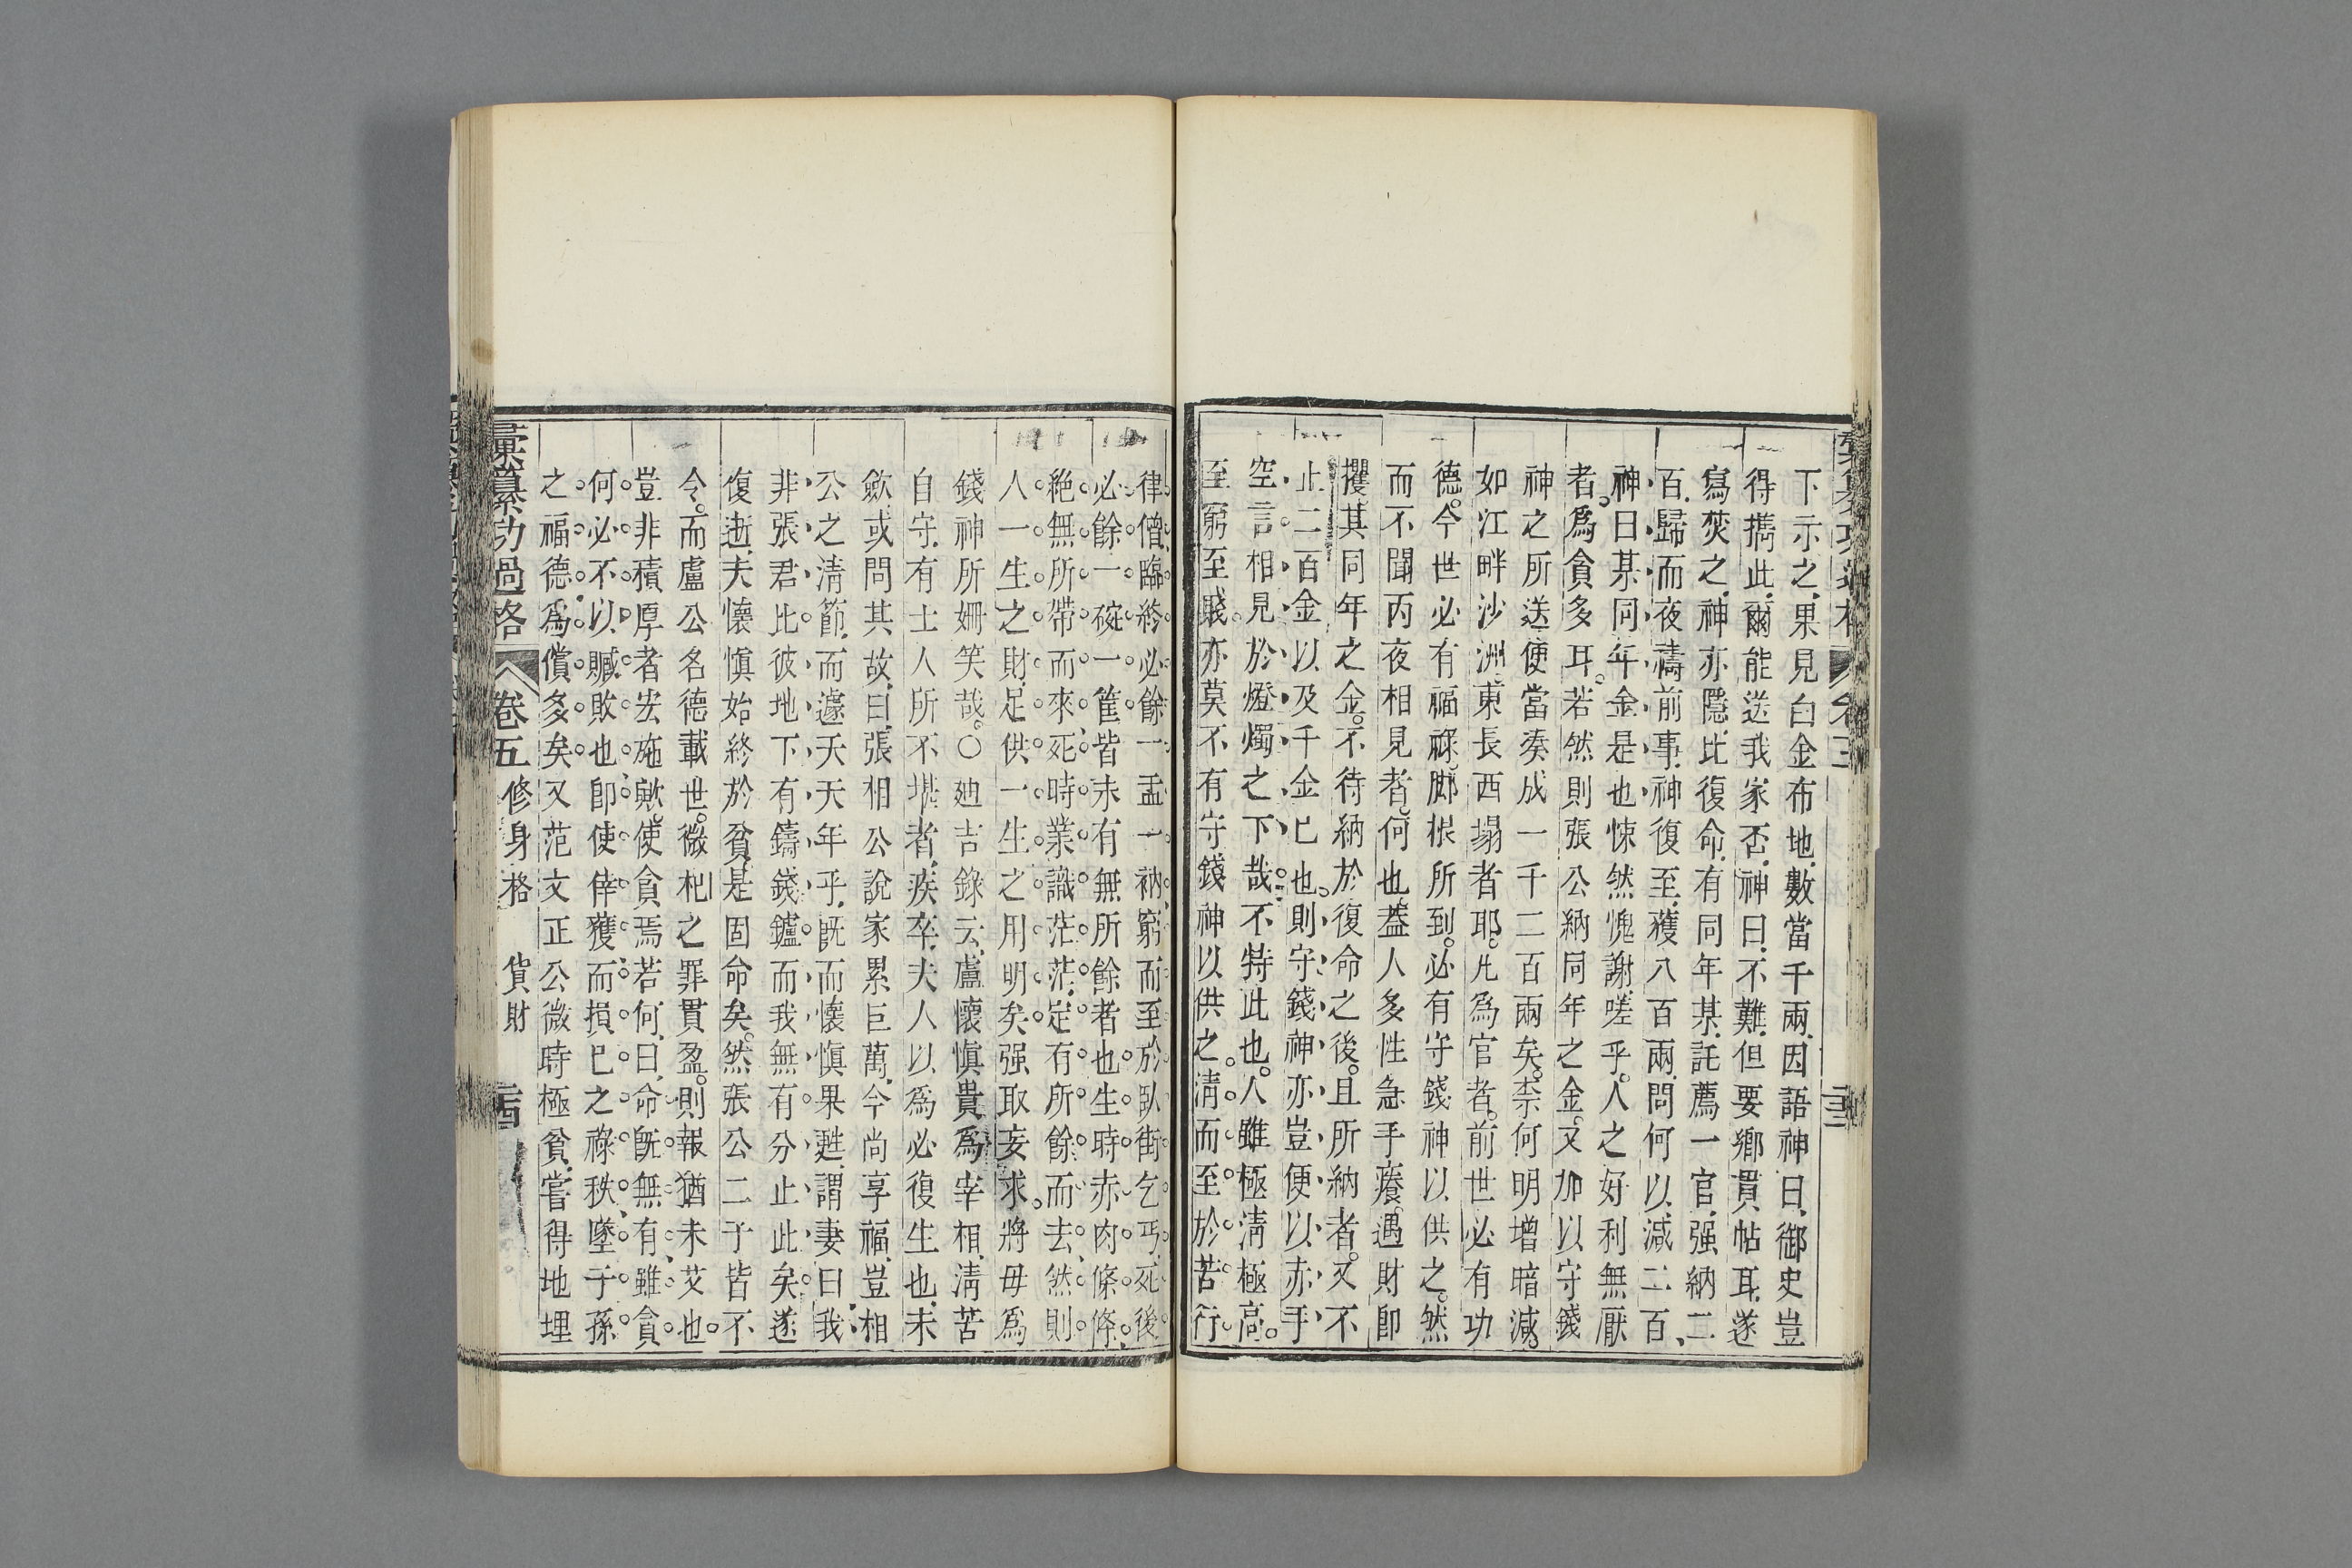 下示之果見白金布地數當千兩因語神曰御史豈
得擕此爾能送我家否神曰不難但要鄉貫帖耳遂
寫焚之神亦隱比復命有同年某託薦一官强納二
百歸而夜禱前事神復至獲八百兩問何以減二百
神曰某同年金是也悚然愧謝嗟乎人之好利無厭
者爲貪多耳若然則張公納同年之金又加以守錢
神之所送便當湊成一千二百兩矣柰何明增暗減
如江畔沙洲東長西塌者耶凡爲官者前世必有功
德今世必有福祿脚根所到必有守錢神以供之然
而不聞丙夜相見者何也葢人多性急手癢遇財卽
攫其同年之金不待納於復命之後且所納者又不
止二百金以及千金已也則守錢神亦豈便以赤手
空言相見於燈燭之下哉不特此也人雖極淸極高
至窮至賤亦莫不有守錢神以供之淸而至於苦行
律僧臨終必餘一盂一衲窮而至於臥街乞丐死後
必餘一碗一筐皆未有無所餘者也生時赤肉條條
絶無所帶而來死時業識茫茫定有所餘而去然則
人一生之財足供一生之用明矣强取妄求將毋爲
錢神所姍笑哉〇廸吉錄云盧懷愼貴爲宰相淸苦
自守有士人所不堪者疾卒夫人以爲必復生也未
歛或問其故曰張相公說家累巨萬今尚享福豈相
公之清節而遽夭天年乎旣而懷愼果甦謂妻曰我
非張君比彼地下有鑄錢鑪而我無有分止此矣遂
復逝夫懷愼始終於貧是固命矣然張公二子皆不
令而盧公名德載世微杞之罪貫盈則報猶未艾也
豈非積厚者宏施歟使貪焉若何曰命旣無有雖貪
何必不以贓敗也卽使倖獲而損已之祿秩墜子孫
之福德爲償多矣又范文正公微時極貧嘗得地埋
彙纂功過格 卷五 修身格 貨財 二四